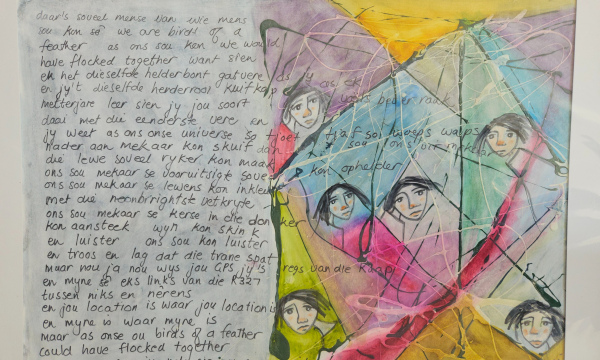 daar's soveel mense van wie mens
sou kon sê we are birds of a
feather as ons sou kon we would
have flocked together want sien
ek het dieselfde helderbont gatvere as jy
en jy't dieselfde henderraal kuifkop
metterjare leer sien jy jou soort
daai met die eenderste vere en
jy weet as ons onse universe so tjoef tjaf so woeps walps
nader aan mekaar kon skuif dan sou ons
die lewe soveel ryker kon maak
ons sou mekaar se vooruitsigte soveel kon ophelder
ons sou mekaar se lewens kon inkleur
met die helderbrightste vetkryte
ons sou mekaar se kerse in die donker
kon aansteek wyn kon skink
en luister ons sou kon luister
en troos en lag dat die trane spat
maar nou ja nou wys jou GPS jy is regs van die Kaap
en myne sê eks links van die R327
tussen niks en nêrens
en jou location is waar jou location is
en myne is waar myne is
maar as onse ou birds of a feather
could have flocked together